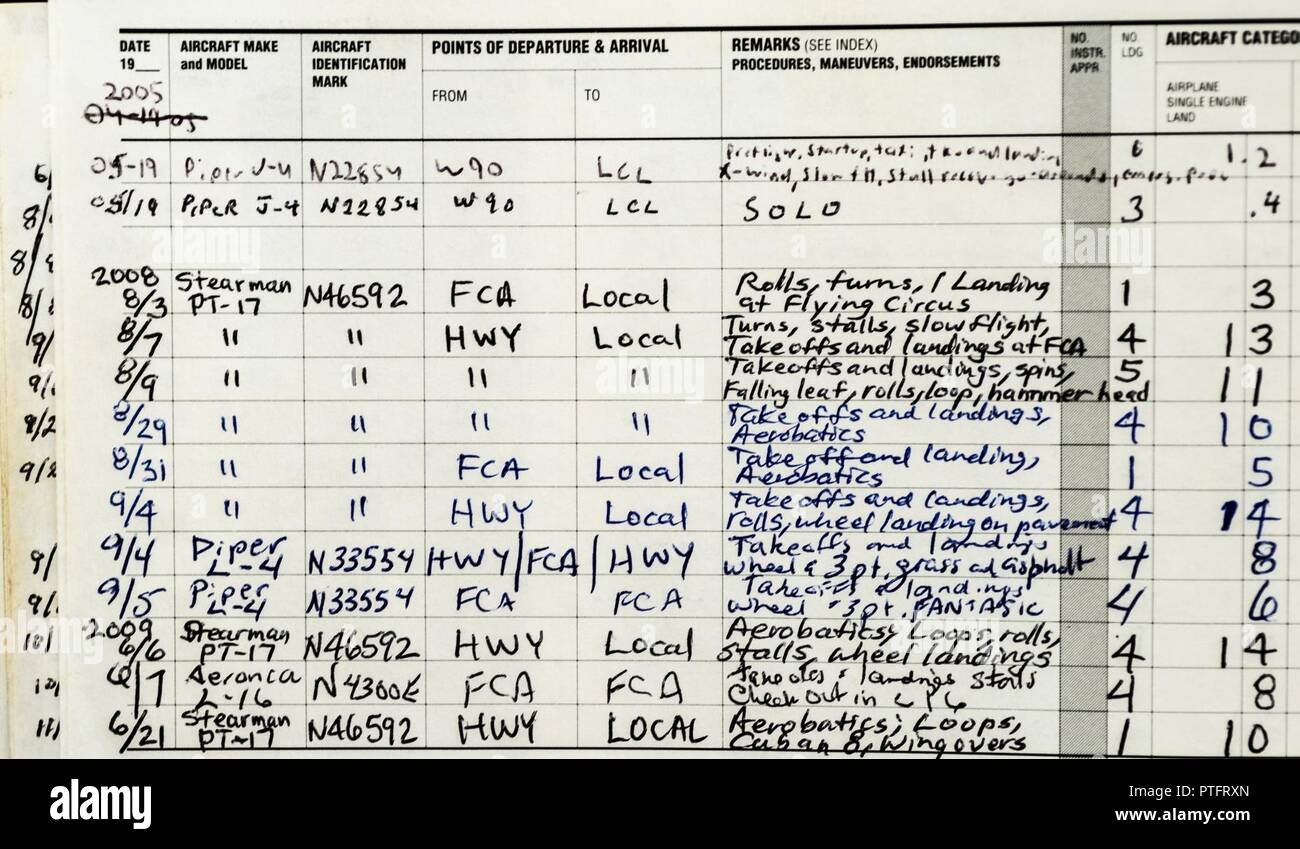 DATE AIRCRAFT MAKE AIRCRAFT POINTS OF DEPARTURE & ARRIVAL REMARKS (SEE INDEX) NO. NO. AIRCRAFT CATEGO
19__ and MODEL IDENTIFICATION PROCEDURES, MANEUVERS, ENDORSEMENTS INSTR. LDG
MARK APPR.
FROM TO AIRPLANE
SINGLE ENGINE
LAND
2005
04-19-05
Preflight, Startup, taxi, landing
05-19 Piper J-4 N22854 W90 LCL X-wind, Slow flt, Stall 6 1.2
05/19 PIPER J-4 N22854 W90 LCL SOLO 3 .4
2008 Stearman Rolls, turns, 1 Landing
8/3 PT-17 N46592 FCA Local at Flying Circus 1 3
Turns, stalls, slow flight,
8/7 " " HWY Local Takeoffs and landings at FCA 4 1 3
Takeoffs and landings, spins,
8/9 " " " " Falling leaf, rolls, loop, hammer head 5 1 1
Takeoffs and landings,
8/29 " " " " Aerobatics 4 1 0
Takeoff and landing,
8/31 " " FCA Local Aerobatics 1 5
Takeoffs and landings,
9/4 " " HWY Local rolls, wheel landing on pavement 4 1 4
Piper Takeoffs and landings
9/4 L-4 N33554 HWY/FCA/HWY wheel & 3 pt. grass ad asphalt 4 8
Piper Takeoffs & landings
9/5 L-4 N33554 FCA FCA wheel & 3 pt. FANTASTIC 4 6
2009 Stearman Aerobatics, Loops, rolls,
6/6 PT-17 N46592 HWY Local stalls, wheel landings 4 1 4
Aeronca landings Stalls
6/7 L-16 N4300E FCA FCA Check out in L16 4 8
Stearman Aerobatics; Loops,
6/21 PT-17 N46592 HWY LOCAL Cuban 8, Wingovers 1 1 0
6/
8/
8/
8/
9/
9/
9/2
9/2
9/
9/
10/
10/
11/
alamy
alamy
Image ID: PTFRXN
www.alamy.com